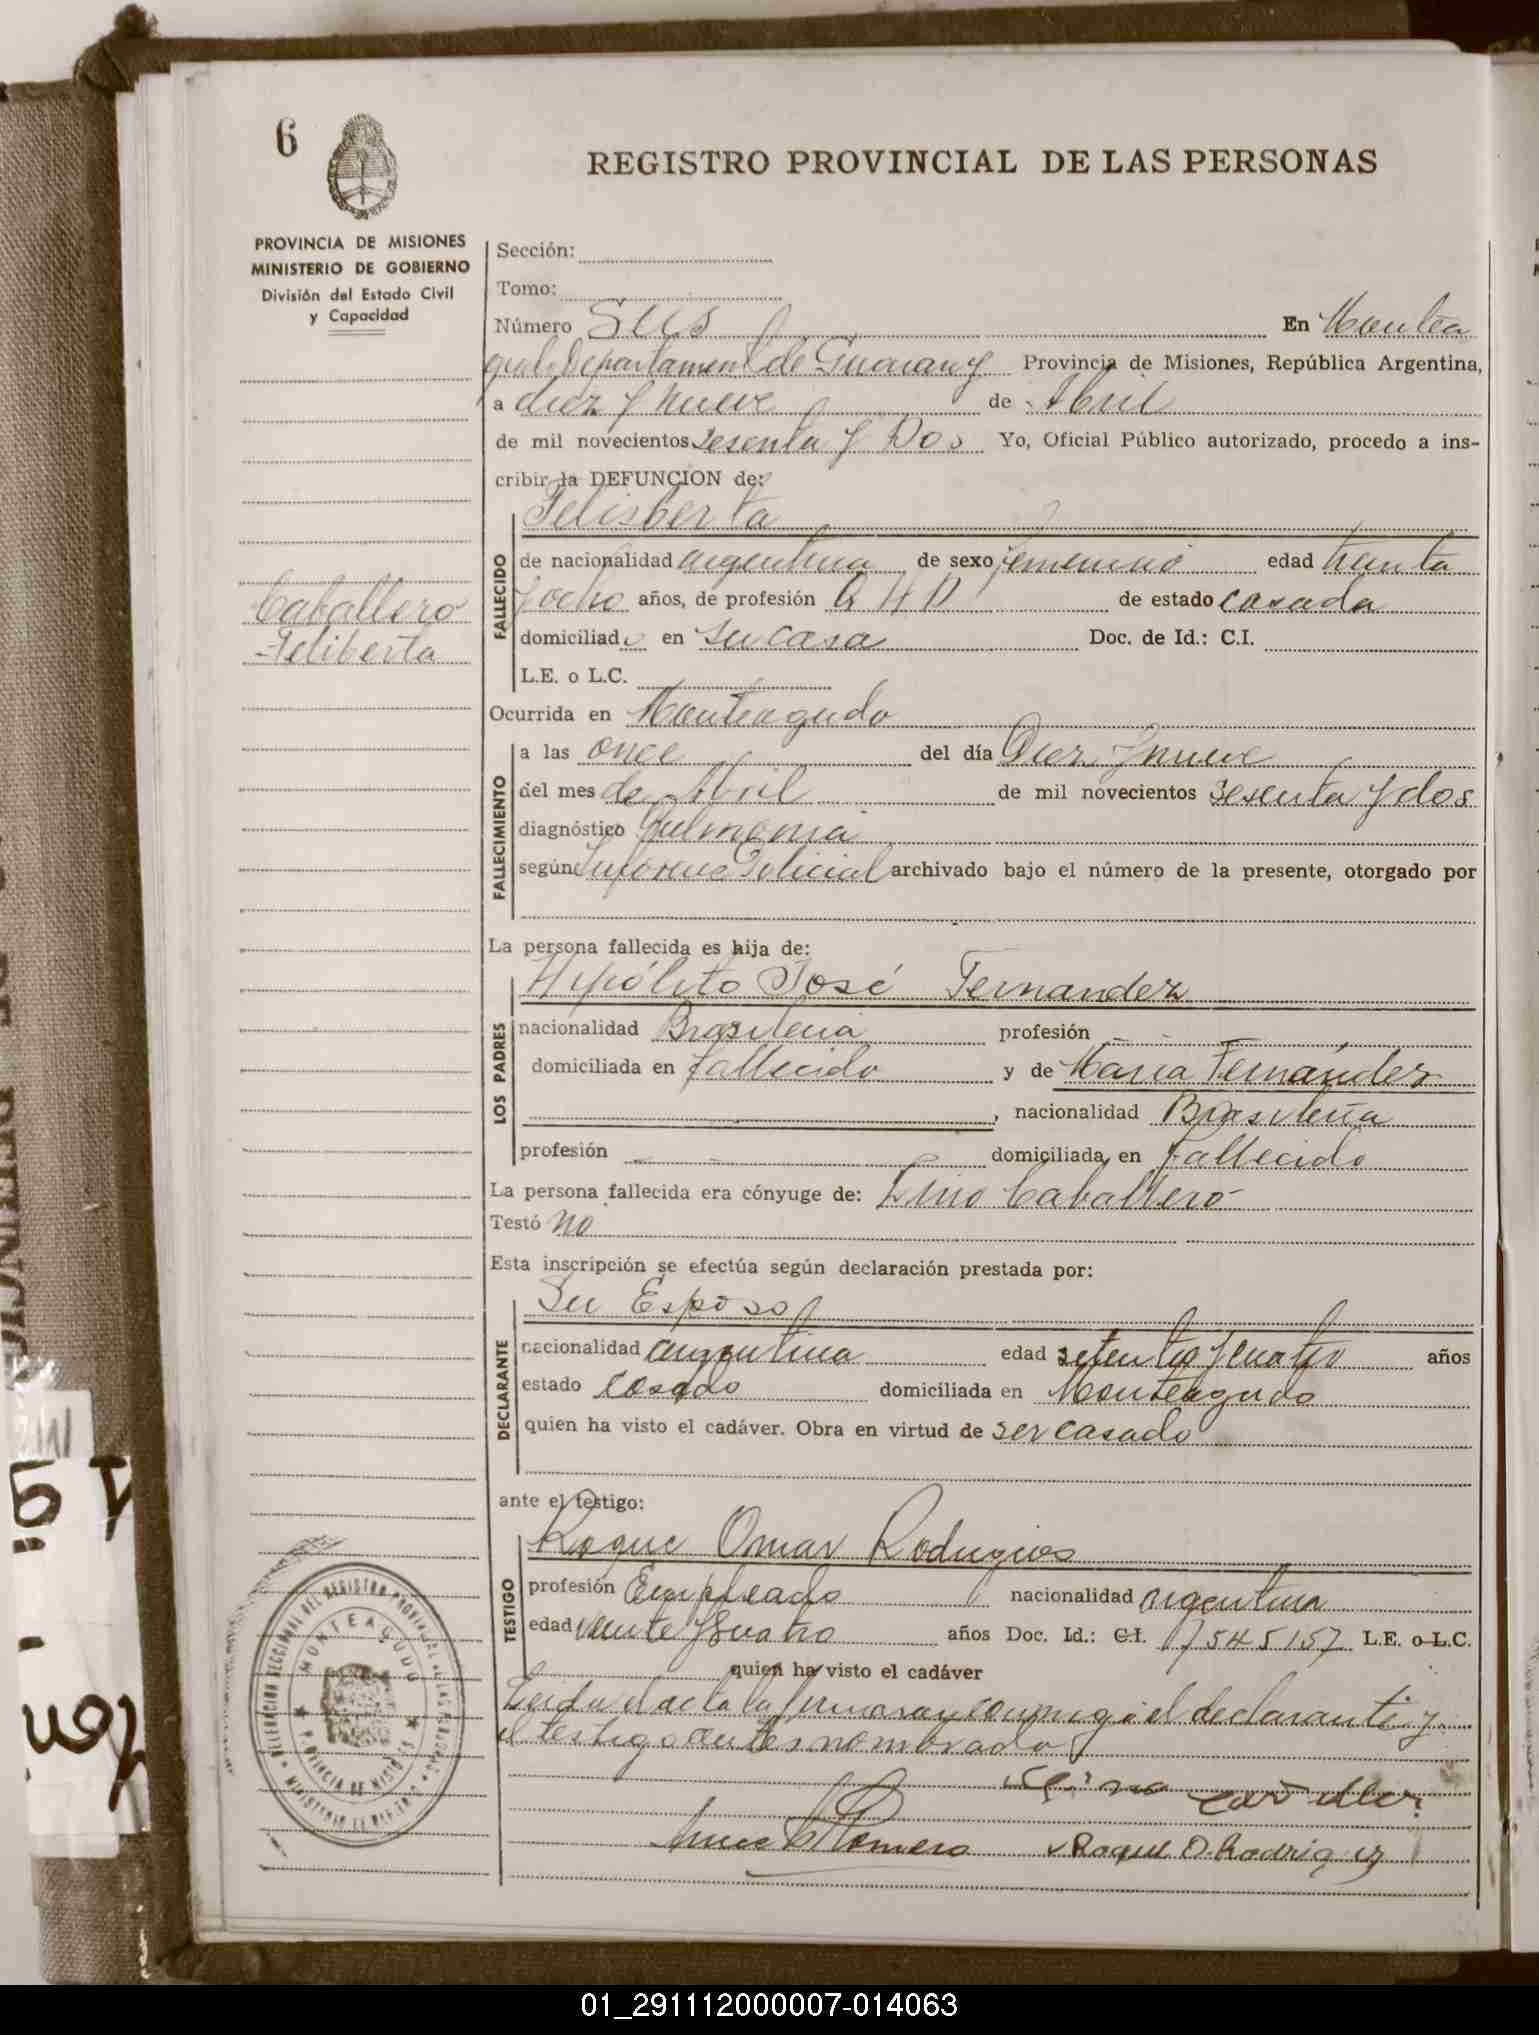 6
REGISTRO PROVINCIAL DE LAS PERSONAS
PROVINCIA DE MISIONES
MINISTERIO DE GOBIERNO
División del Estado Civil
y Capacidad
Sección:
Tomo:
Número Seis En Montea
gudo Departamento de Guarany Provincia de Misiones, República Argentina,
a diez y nueve de Abril
de mil novecientos sesenta y Dos Yo, Oficial Público autorizado, procedo a ins-
cribir la DEFUNCION de:
Caballero
Feliberta
FALLECIDO
Felisberta
de nacionalidad argentina de sexo femenino edad treinta
y ocho años, de profesión Q H D de estado casada
domiciliad en su casa Doc. de Id.: C.I.
L.E. o L.C.
Ocurrida en Monteagudo
FALLECIMIENTO
a las once del día Diez y nueve
del mes de Abril de mil novecientos sesenta y dos
diagnóstico Pulmonia
según Informe Policial archivado bajo el número de la presente, otorgado por
La persona fallecida es hija de:
LOS PADRES
Hipólito José Fernandez
nacionalidad Brasileña profesión
domiciliada en fallecido y de Maria Fernández
, nacionalidad Brasileña
profesión domiciliada en fallecido
La persona fallecida era cónyuge de: Lino Caballero
Testó no
Esta inscripción se efectúa según declaración prestada por:
DECLARANTE
Su Esposo
nacionalidad argentina edad setenta y cuatro años
estado Casado domiciliada en Monteagudo
quien ha visto el cadáver. Obra en virtud de ser casado
ante el testigo:
TESTIGO
Roque Omar Rodrigues
profesión Empleado nacionalidad argentina
edad veinte y Cuatro años Doc. Id.: C.I. 7545157 L.E. o L.C.
quien ha visto el cadáver
Leida el acta la firmaron conmigo el declarante y
el testigo antes nombrado
Lino
Romero Roque O. Rodriguez
DELEGACION SECCIONAL DEL REGISTRO PROVINCIAL DE LAS PERSONAS
MONTEAGUDO
PROVINCIA DE MISIONES
01_291112000007-014063